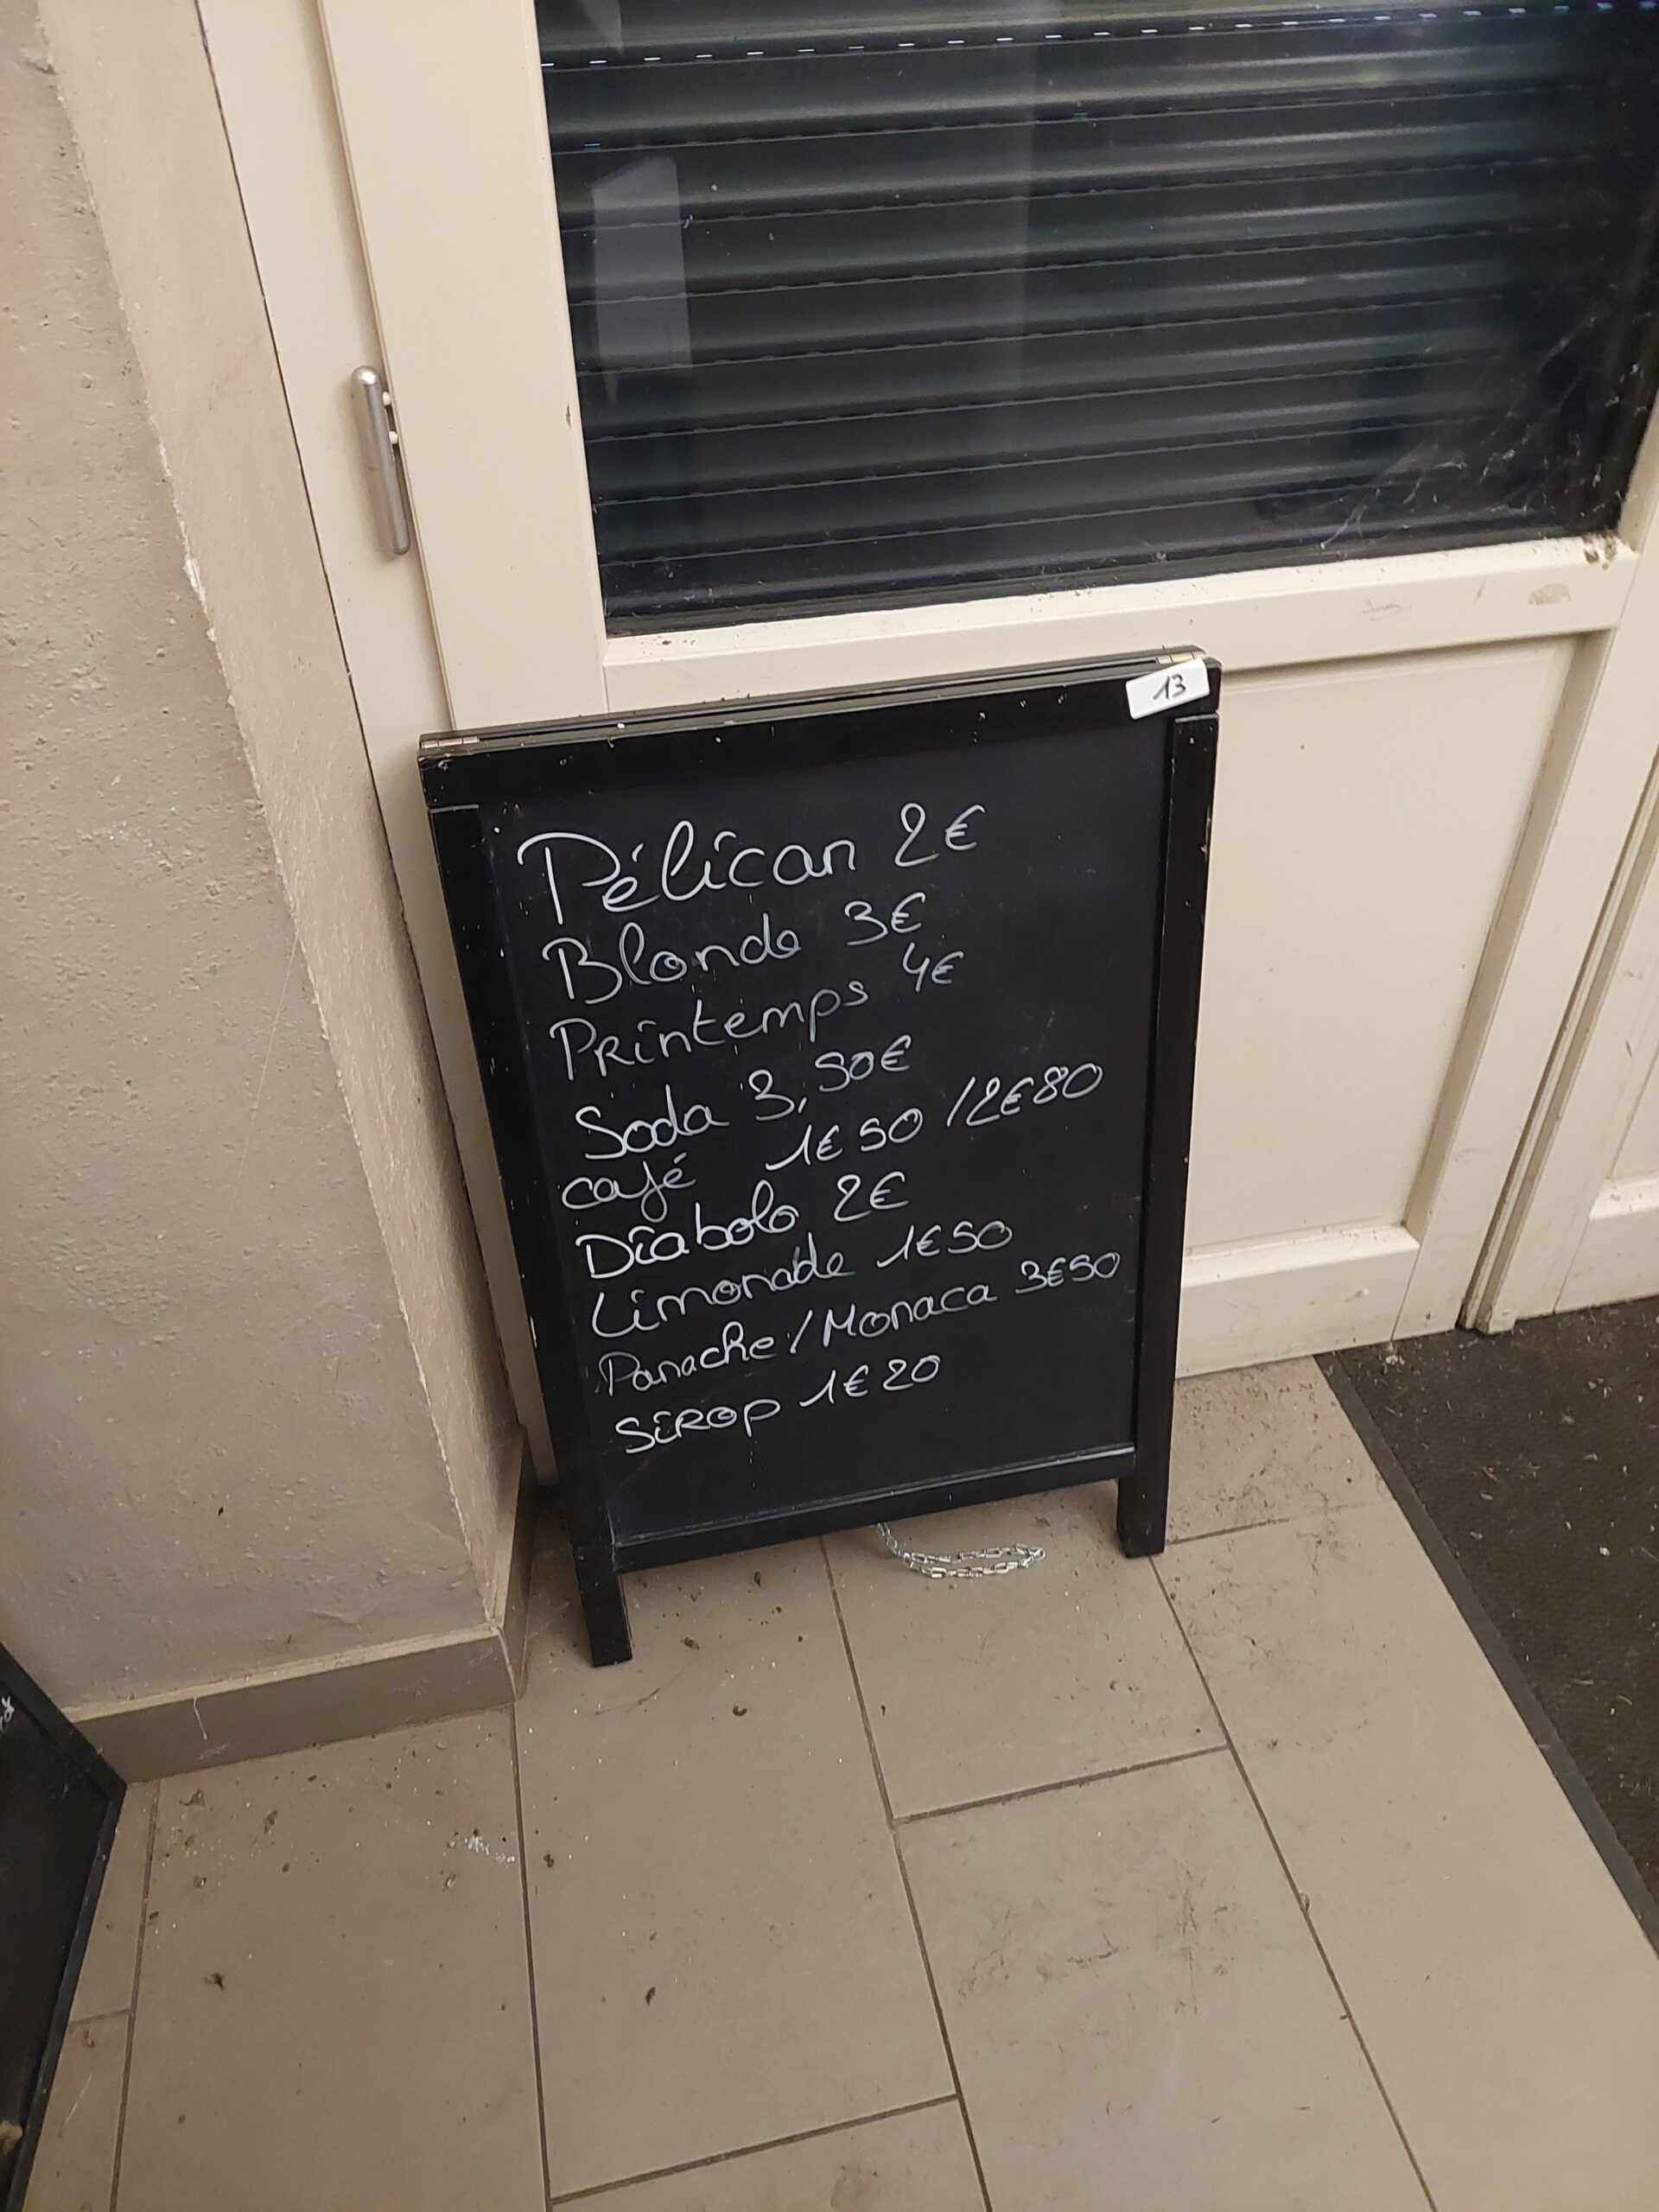 13
Pélican 2€
Blonde 3€
Printemps 4€
Soda 3,50€
café 1€50 /2€80
Diabolo 2€
Limonade 1€50
Panache/Monaca 3€50
Sirop 1€20